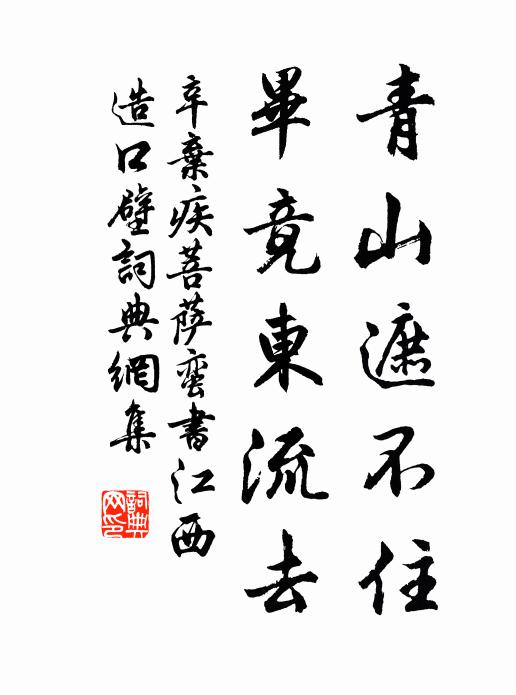 青山遮不住
畢竟東流去
辛棄疾菩薩蠻書江西
造口壁詞典網集
詞典網印